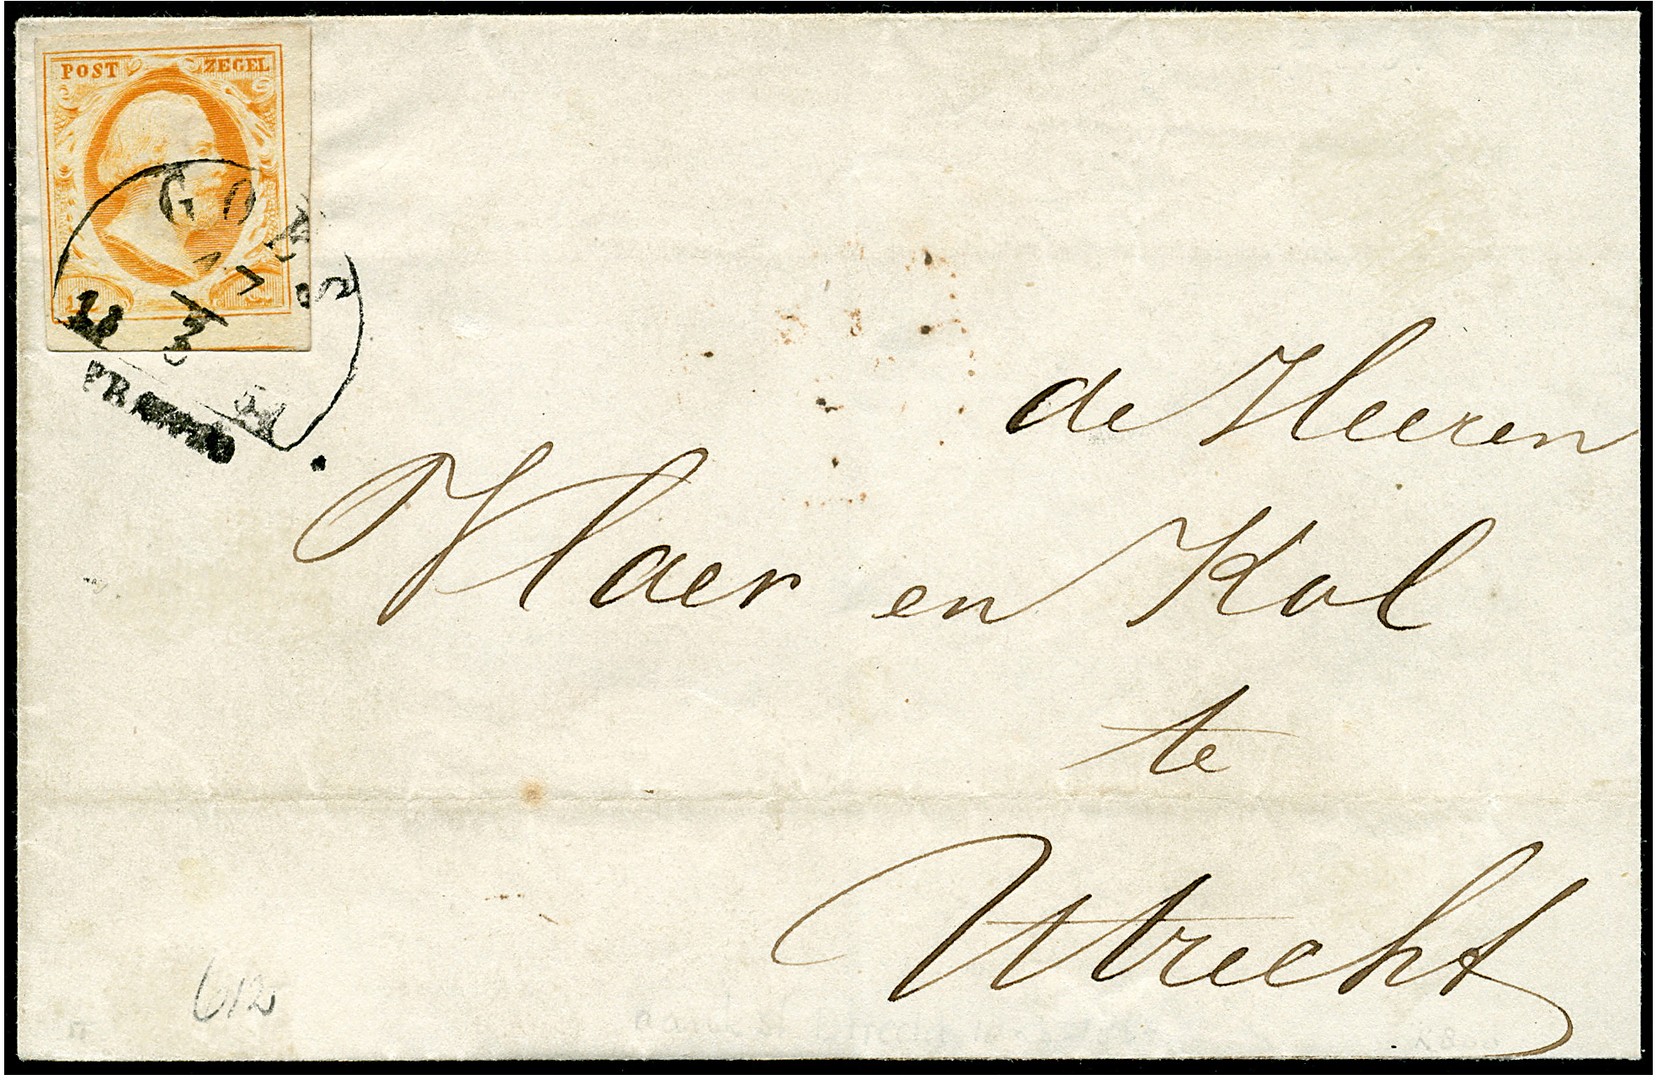 POST ZEGEL
GOES
17
18
FRANCO
de Heeren
Vlaer en Kol
te
Utrecht
612